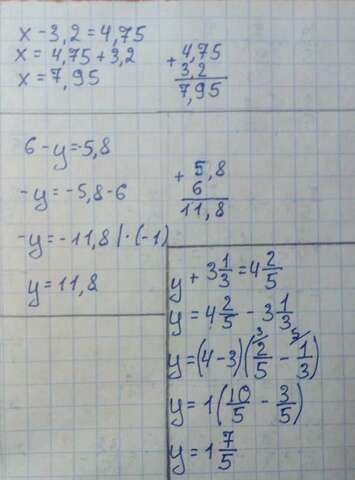 x - 3,2 = 4,75
x = 4,75 + 3,2
x = 7,95
+ 4,75
3,2
7,95
6 - y = -5,8
-y = -5,8 - 6
-y = -11,8 | · (-1)
y = 11,8
+ 5,8
6
11,8
y + 3 1/3 = 4 2/5
y = 4 2/5 - 3 1/3
y = (4 - 3) (2/5 3 - 1/3 5)
y = 1 (10/5 - 3/5)
y = 1 7/5